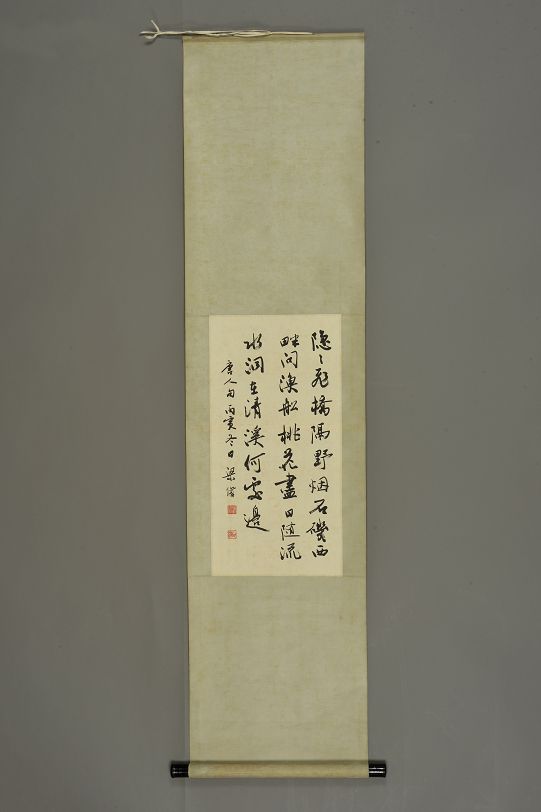 隐々飛橋隔野烟石磯西
畔问漁船桃花盡日随流
水洞在清溪何處邊
唐人句丙寅冬日梁